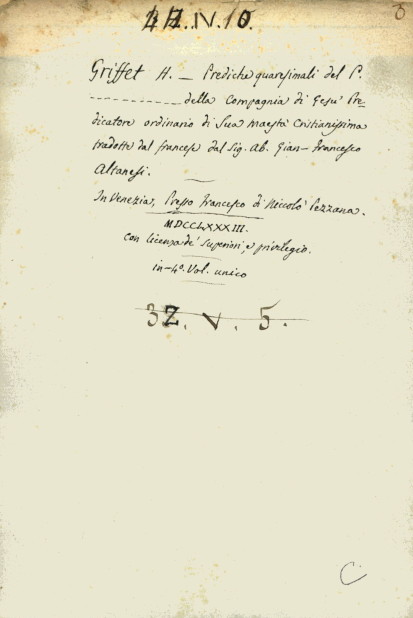 4Z.IV.10.
Griffet H. _ Prediche quaresimali del P.
- - - - - - - - - - - della Compagnia di Gesu' Pre-
dicatore ordinario di Sua maestà Cristianissima
tradotte dal francese dal Sig. Ab. Gian-Francesco
Altanesi.
In Venezia, Presso Francesco di Niccolò Pezzana.
MDCCLXXXIII.
Con licenza de' Superiori, e privilegio.
in-4º. Vol. unico
3Z. V. 5.
C